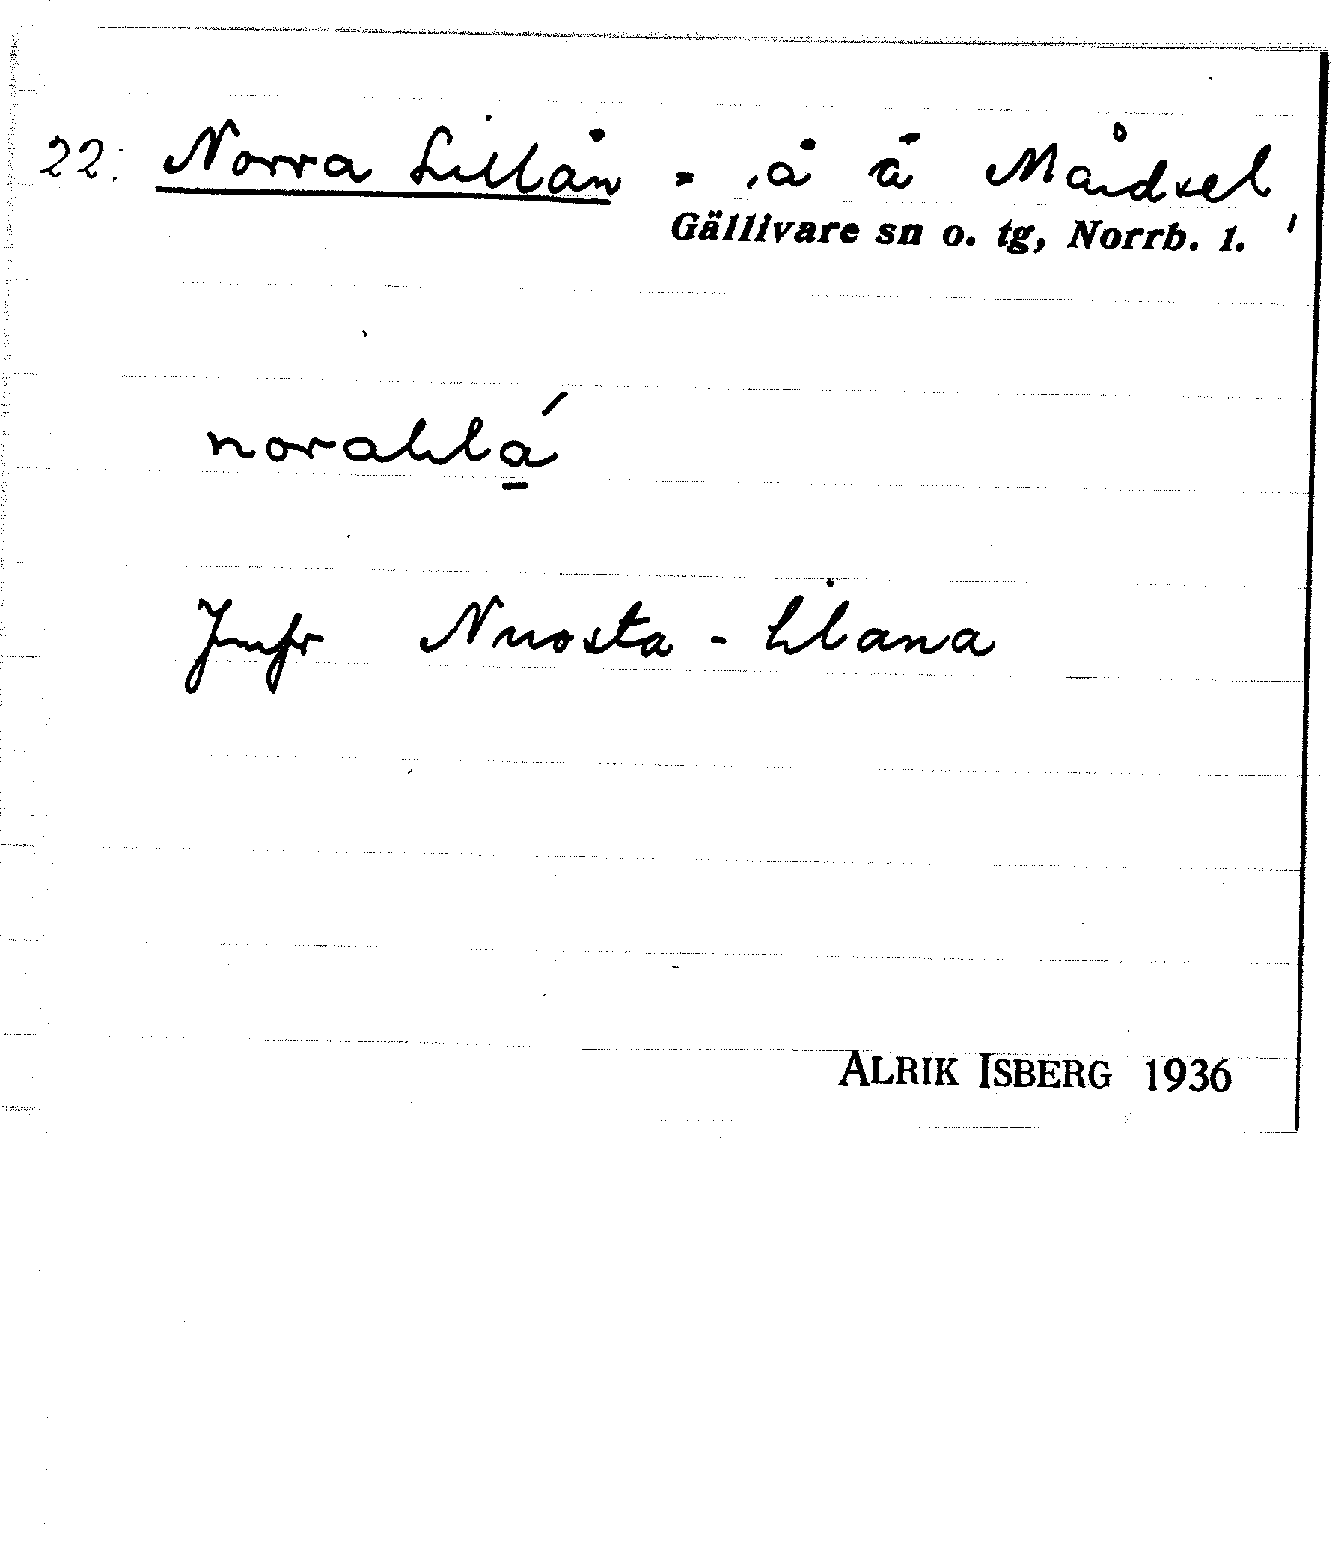 22. Norra Lillån - å å Mårdsel,
Gällivare sn o. tg, Norrb. l.
Jmfr Nuosta - Lilåna
ALRIK ISBERG 1936